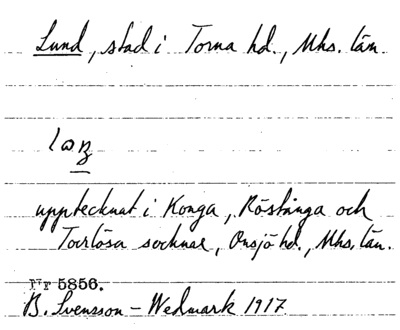 Lund, stad i Torna hd., Mhs. län.
upptecknat i Konga, Röstånga och
Torrlösa socknar, Onsjö hd., Mhs. län.
Nr 5856.
B. Svensson-Wedmark 1917